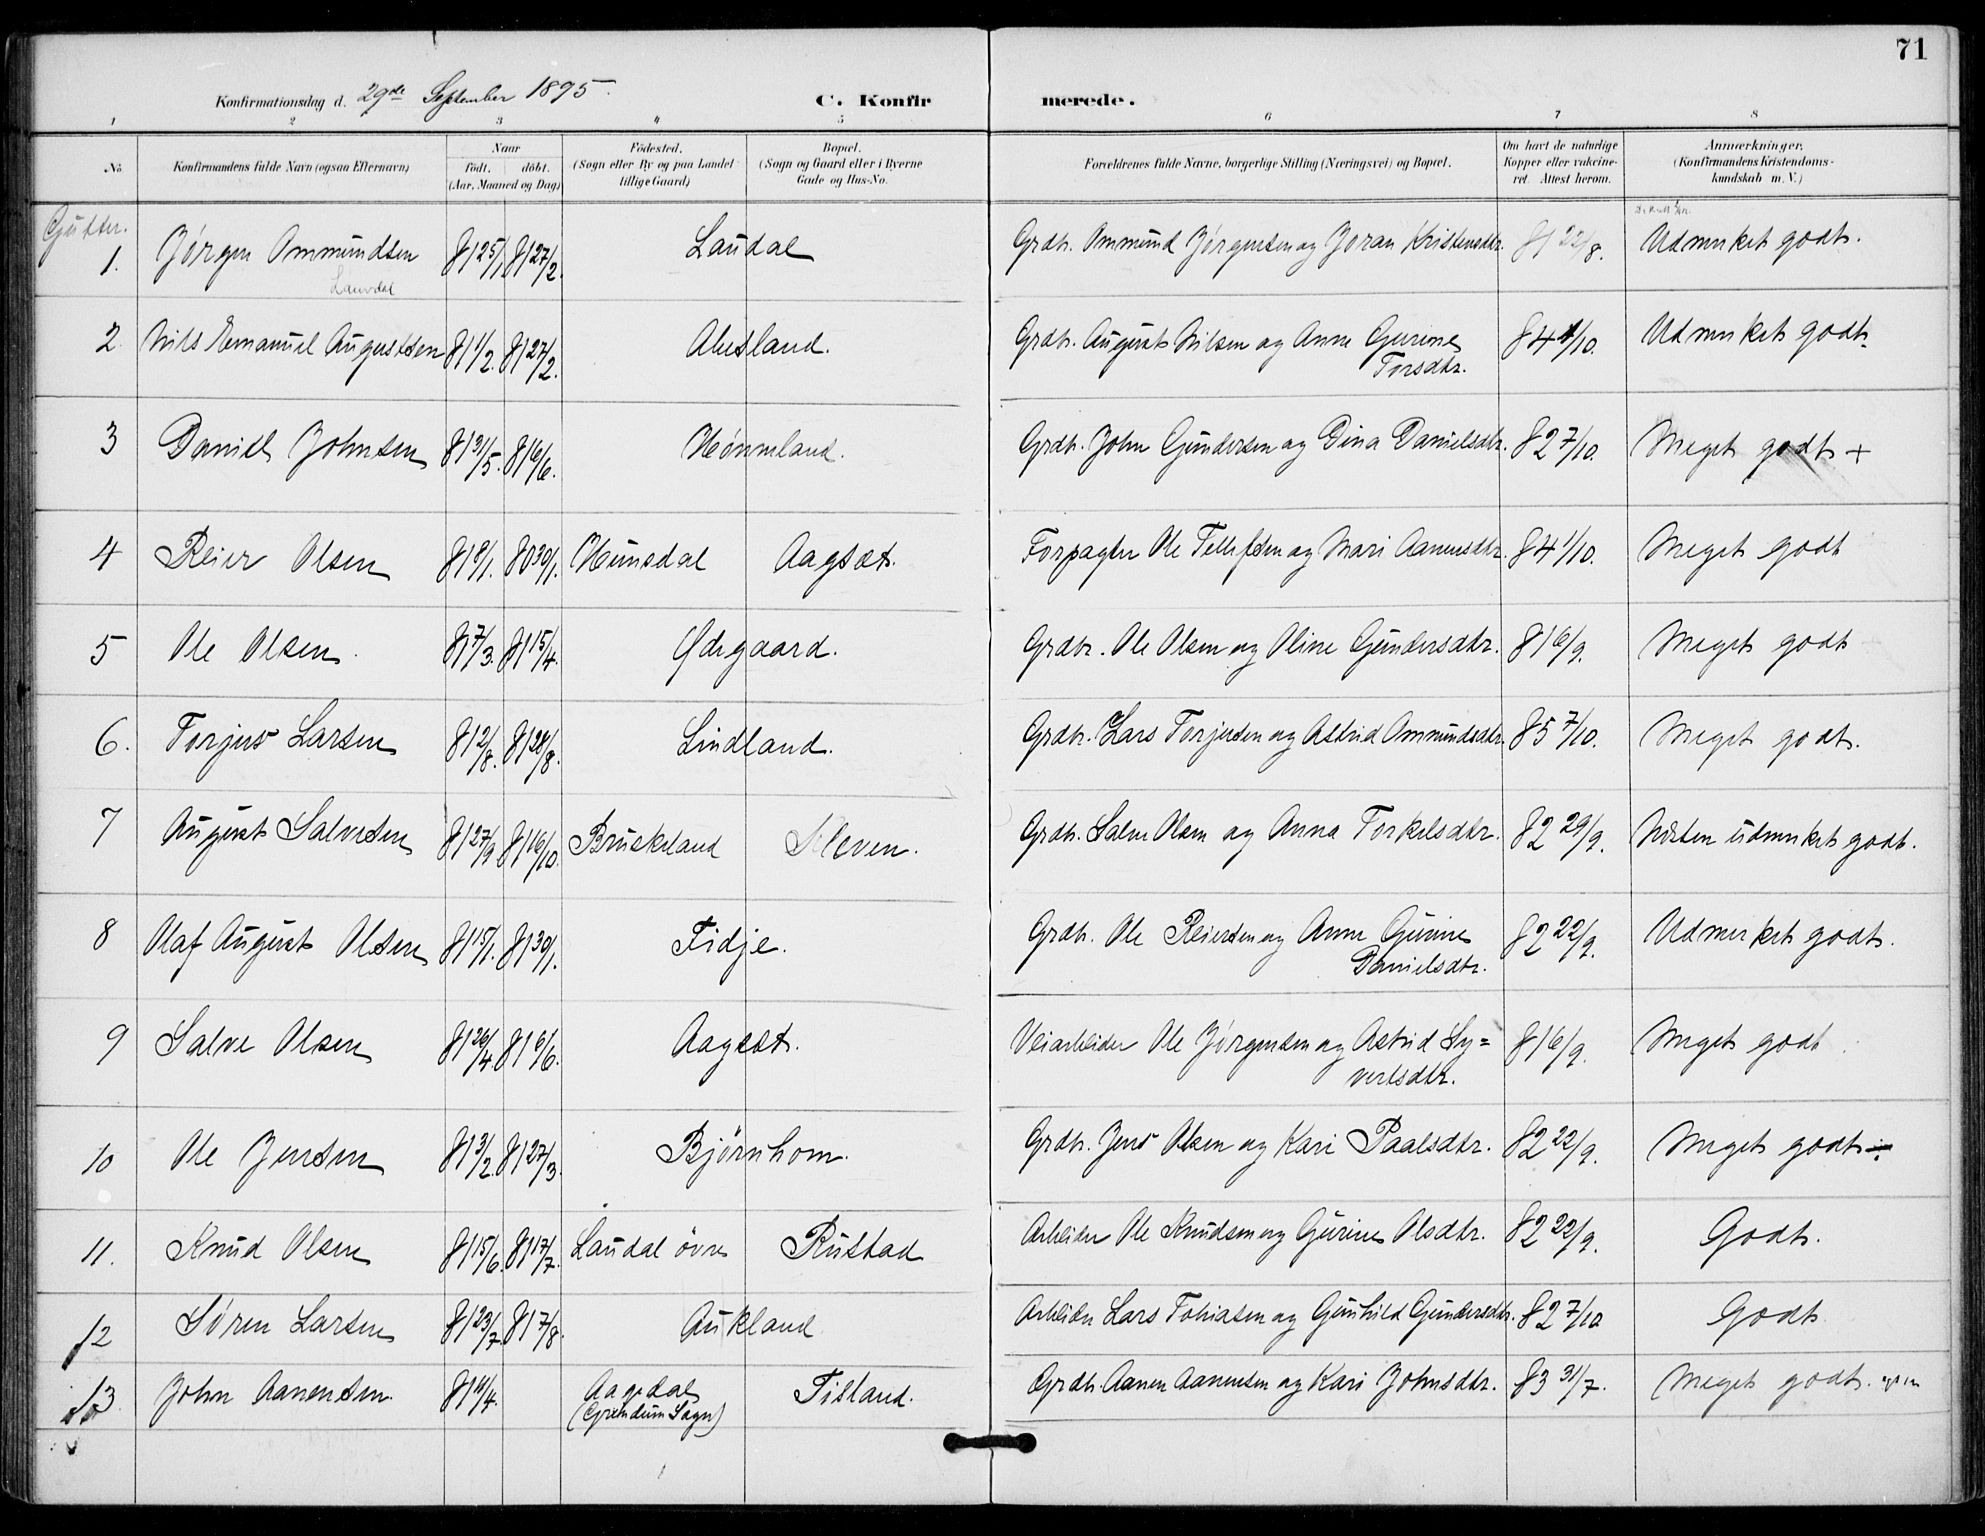 71
Konfirmationsdag d. 29de September 1895. C. Konfirmerede.
1 2 3 4 5 6 7 8
No. Konfirmandens fulde Navn (ogsaa Efternavn) Naar födt. döbt. (Aar, Maaned og Dag) Födested. (Sogn eller By og paa Landet tillige Gaard) Bopæl. (Sogn og Gaard eller i Byerne Gade og Hus-No. Forældrenes fulde Navne, borgerlige Stilling (Næringsvei) og Bopæl. Om havt de naturlige Kopper eller vakcineret. Attest herom. Anmærkninger. (Konfirmandens Kristendomskundskab m. V.)
Gutter.
1. Jörgen Ommundsen 81 25/1 81 27/2. Laudal Grdbr. Ommund Jörgensen og Joran Kristensdtr. 81 22/8. Udmerket godt.
Lauvdal
2 Nils Emanuel Augustsen 81 1/2. 81 27/2. Ahusland. Grdbr. August Nilsen og Anne Gurine 84 1/10. Udmerket godt.
Torsdtr.
3 Daniel Johnsen 81 31/5. 81 6/6. Hönnmland. Grdbr. John Gundersen og Dina Danielsdtr. 82 7/10. Meget godt +
4 Reier Olsen 81 8/1. 80 30/1. Hunsdal Aagsæt. Forpagter Ole Tellefsen og Mari Aanensdtr. 84 1/10. Meget godt
5 Ole Olsen. 81 7/3. 81 15/4. Ødegaard. Grdbr. Ole Olsen og Oline Gundersdtr. 81 6/9. Meget godt
6. Torjus Larsen 81 2/8. 81 28/8. Lindland. Grdbr. Lars Torjusen og Astrid Ommundsdtr. 85 7/10. Meget godt.
7 August Salvesen 81 27/9 81 16/10. Bruskeland Kleven. Grdbr. Salve Olsen og Anna Torkelsdtr. 82 29/9. Næsten udmerket godt.
8 Olaf August Olsen 81 15/1. 81 30/1. Fidje. Grdbr. Ole Reiersen og Anne Gurine 82 22/9. Udmerket godt.
Danielsdtr.
9 Salve Olsen 81 26/4. 81 6/6. Aagsæt. Veiarbeider Ole Jörgensen og Astrid Sy= 81 6/9. Meget godt
vertsdtr.
10 Ole Jensen 81 3/2. 81 27/3. Björnhom. Grdbr. Jens Olsen og Kari Paalsdtr. 82 22/9. Meget godt
11. Knud Olsen 81 15/6. 81 17/7. Laudal övre Rustad Arbeider Ole Knudsen og Gurine Olsdtr. 82 22/9. Godt.
12 Sören Larsen 81 23/7. 81 7/8. Aukland Arbeider Lars Tobiasen og Gunhild Gundersdtr. 82 7/10 Godt
13 John Aanensen 81 14/4. Aagedal Tisland. Grdbr. Aanen Aanensen og Kari Johnsdtr. 83 31/7. Meget godt.
(Grindum Sogn)